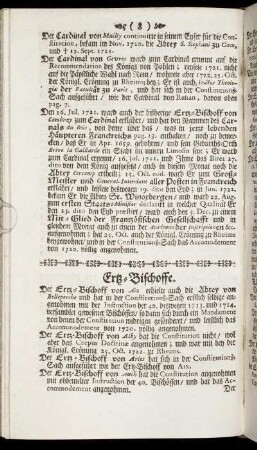 ( 8 )
Der Cardinal von Mailly continuirte in seinem Eyfer für die Con-
stitution, bekam im Nov. 1720. die Abtey S. Stephani zu Caen,
und † 13. Sept. 1721.
Der Cardinal von Gesvres ward zum Cardinal ernennt auf die
Recommendation des Königs von Pohlen; reisete 1721. nicht
auf die Päpstliche Wahl nach Rom, wohnete aber 1722. 25. Oct.
der Königl. Crönung zu Rheims bey; Er ist auch
der Facultät zu Paris, und hat sich in der Constitutions-
Sach aufgeführt, wie der Cardinal von Rohan, davon oben
pag. 7.
Den 16. Jul. 1721. ward auch der bißherige Ertz-Bischoff von
Cambray zum Cardinal erklärt, und hat den Nammen des Car-
nals du Bois, der von denen jetzo lebenden
Häupteren Franckreichs pag. 13. enthalten, noch zu bemer-
cken, daß Er im Apr. 1659. gebohren, und
Brive la Gaillarde ein Stadt im untern Limosin seye; Er ward
zum Cardinal ernennt 16. Jul. 1721, da Ihme das Biret 22.
dito von dem König aufgesetzt, auch in diesem Monat noch die
Abtey Cercamp ertheilt; 15. Oct. ward Er zum Groß-
Meister und General-Intendant aller Posten in Franckreich
erkläret, und leistete deßwegen 19. dito den Eyd; in Jan. 1722.
bekam Er die Abtey S. Winoxbergen, und ward 22. Aug.
zum ersten Staats-Minister declarirt in welcher Qualität Er
den 23. dito den Eyd praestirt; ward auch den 3. Dec. zu einem
Mit-Glied der Frantzösischen Gesellschafft und in
gleichem Monat auch zu einem der Academie der Inscriptionen an-
aufgenommen; hat 25. Oct. auch der Königl. Crönung zu Rheims
beygewohnet, und in der Constitutions-Sach das Accomodement
von 1720. völlig angenohmen.
Ertz-Bischoffe.
Der Ertz-Bischoff von Aix erhielte auch die Abtey von
und hat in der Constitutions-Sach erstlich selbige an-
genommen mit der Instruction der 40. deßwegen 1713. und 1714.
versamlet gewesener Bischöffen, so dann sich durch ein Mandament
von denen der Constitution widrigen gesönderet, und letstlich das
Accommodement von 1720. völlig angenohmen.
Der Ertz-Bischoff von Alby hat die Constitution nicht, wol
aber das Corpus Doctrinæ angenohmen; und war mit bey der
Königl. Crönung 25. Oct. 1722. zu Rheims.
Der Ertz-Bischoff von Arles hat sich in der Constitutions-
Sach aufgeführt wie der Ertz-Bischoff von Aix.
Der Ertz-Bischoff von Auch hat die Constitution angenohmen
mit obbemelter Instruction der 40. Bischöffen, und hat das Ac-
commodement angenohmen.
Der